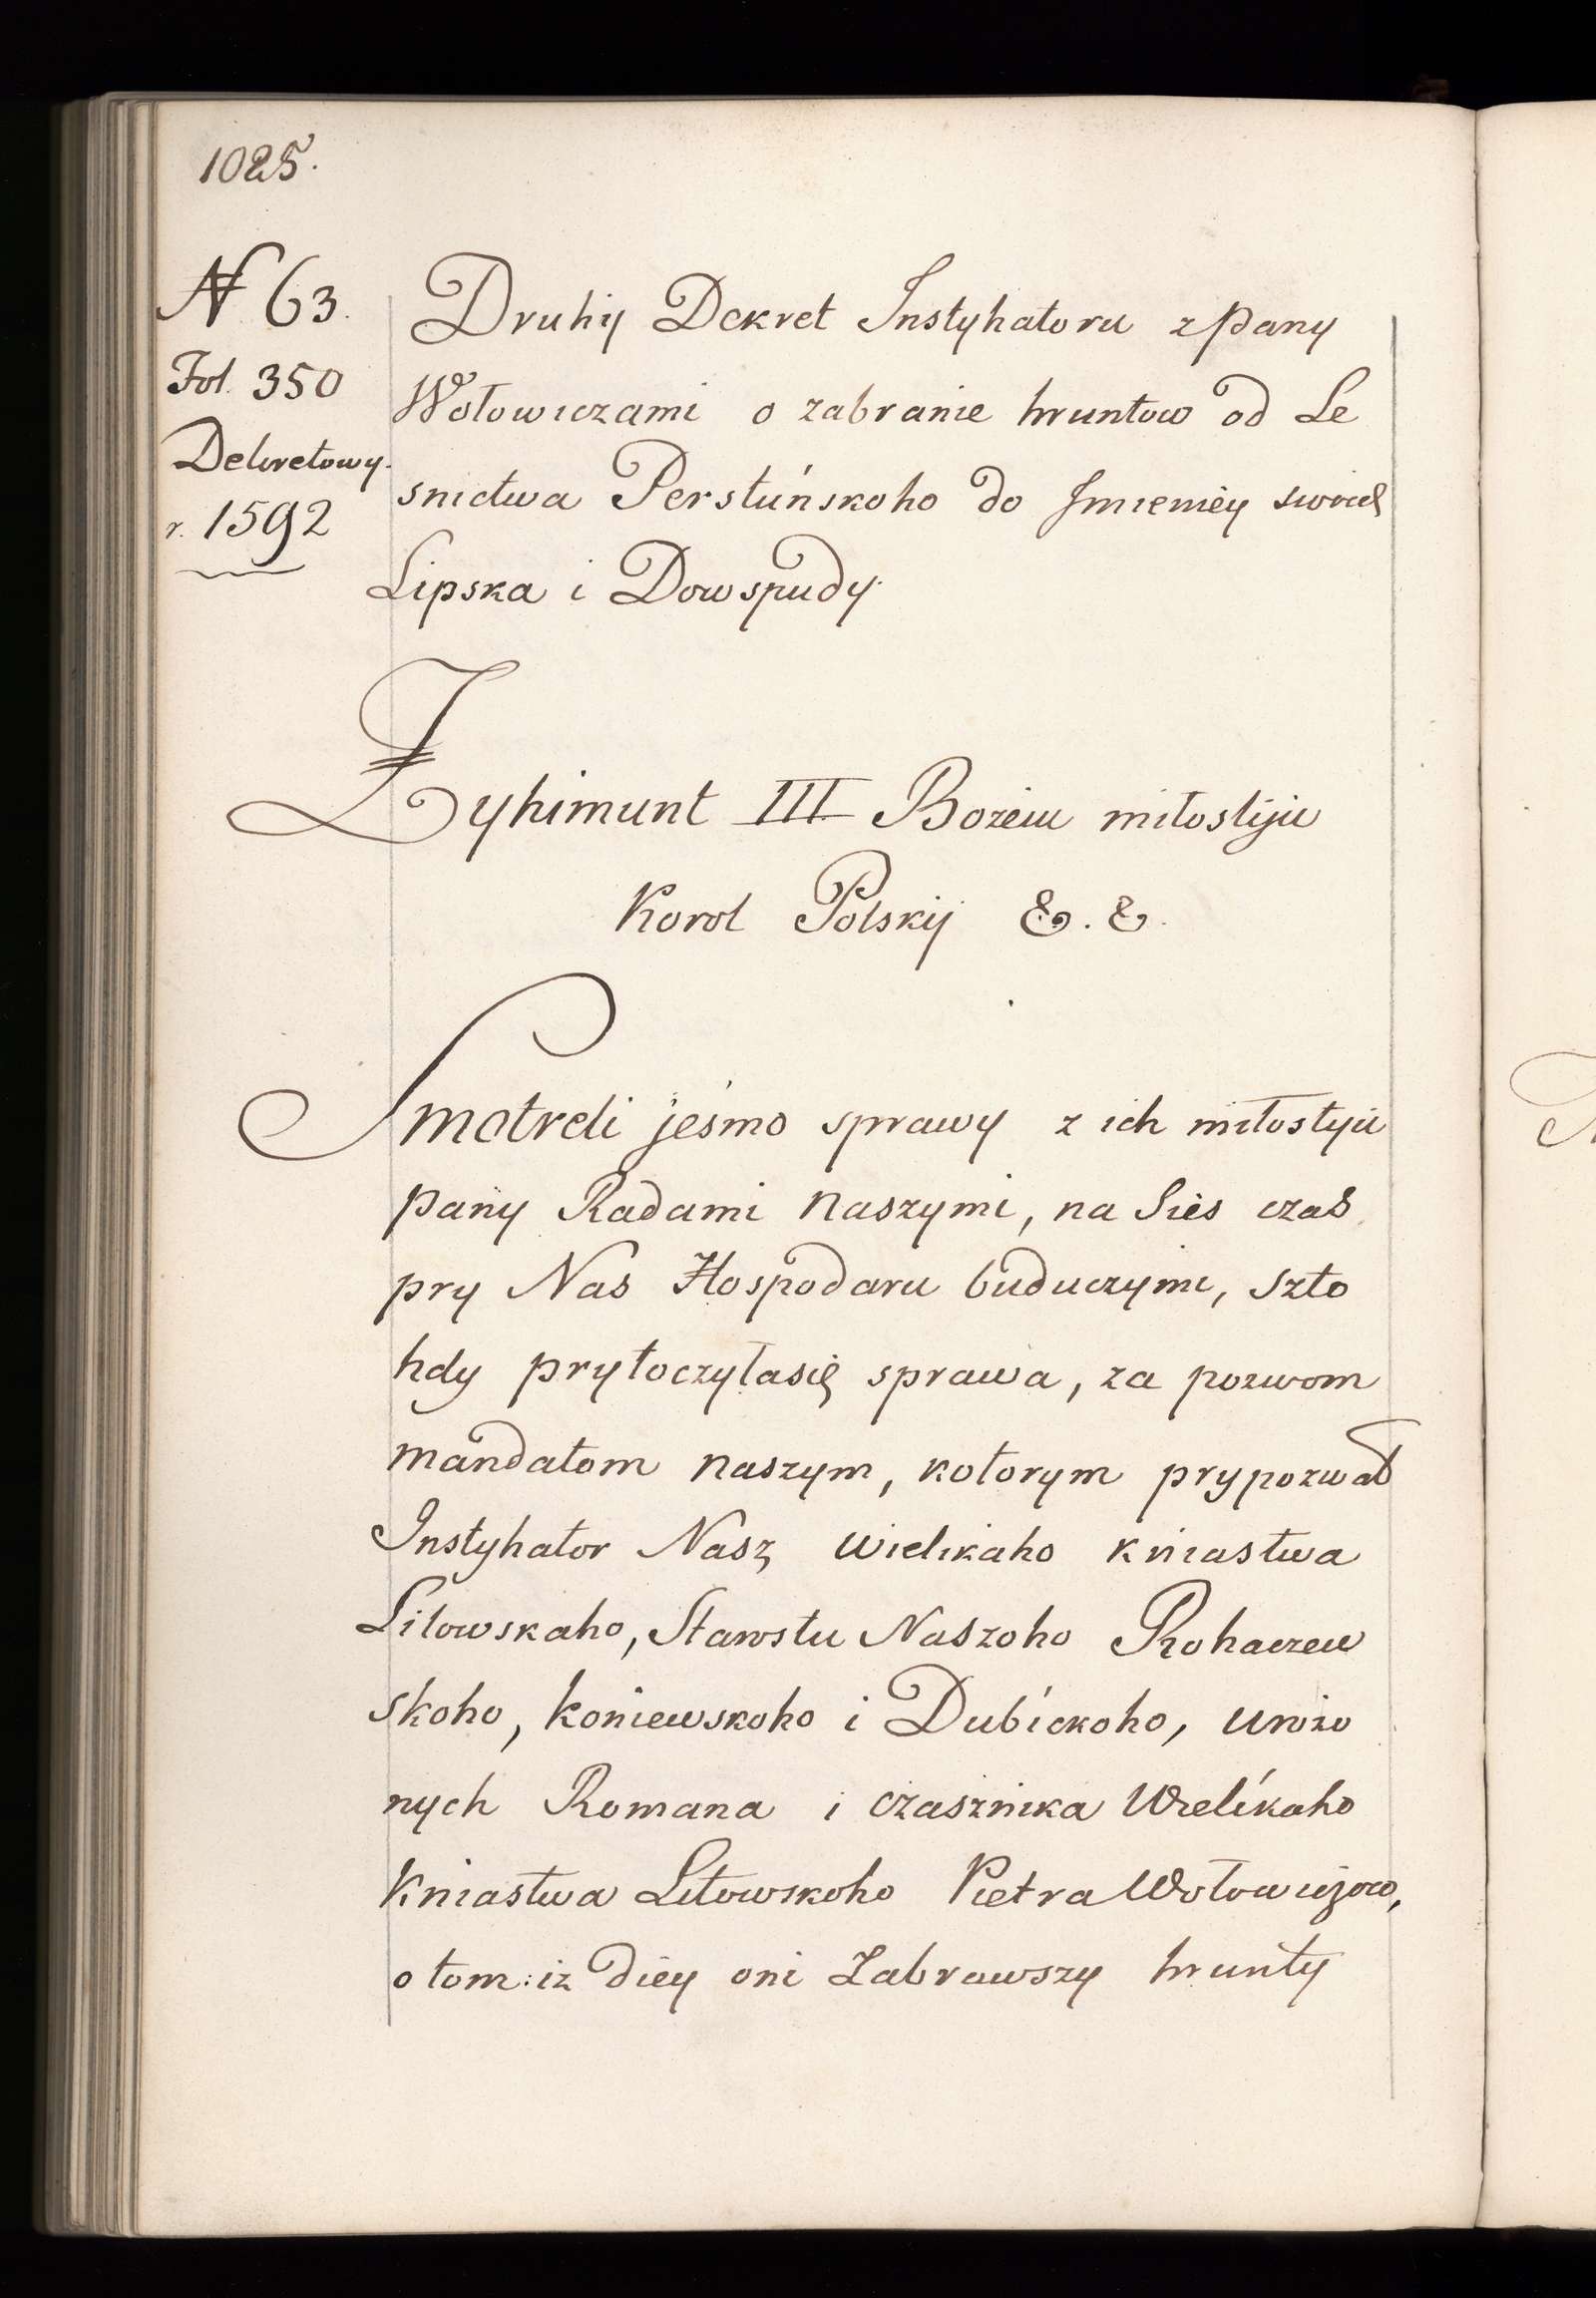 1025.
N 63.
Fol. 350
Dekretowy.
r. 1592
Druhij Dekret Instyhatoru z Pany
Wołowiczami o zabranie hruntow od Le
snictwa Perstuńskoho do Jmieniey swoich
Lipska i Dowspudy.
Zyhimunt III Bożeiu miłostiju
Korol Polskij &. &.
Smotreli jeśmo sprawy z ich miłostyiu
Pany Radami Naszymi, na Sies czas
pry Nas Hospodaru buduczymi, szto
hdy prytoczyłasię sprawa, za pozwom
mandatom naszym, kotorym prypozwał
Instyhator Nasz Wielikaho Kniastwa
Litowskaho, Starostu Naszoho Rohaczew
skoho, Koniewskoho i Dubickoho, Urożo
nych Romana i czasznika Wielikaho
Kniastwa Litowskoho Pietra Wołowiczow,
o tom: iz diey oni Zabrawszy hrunty